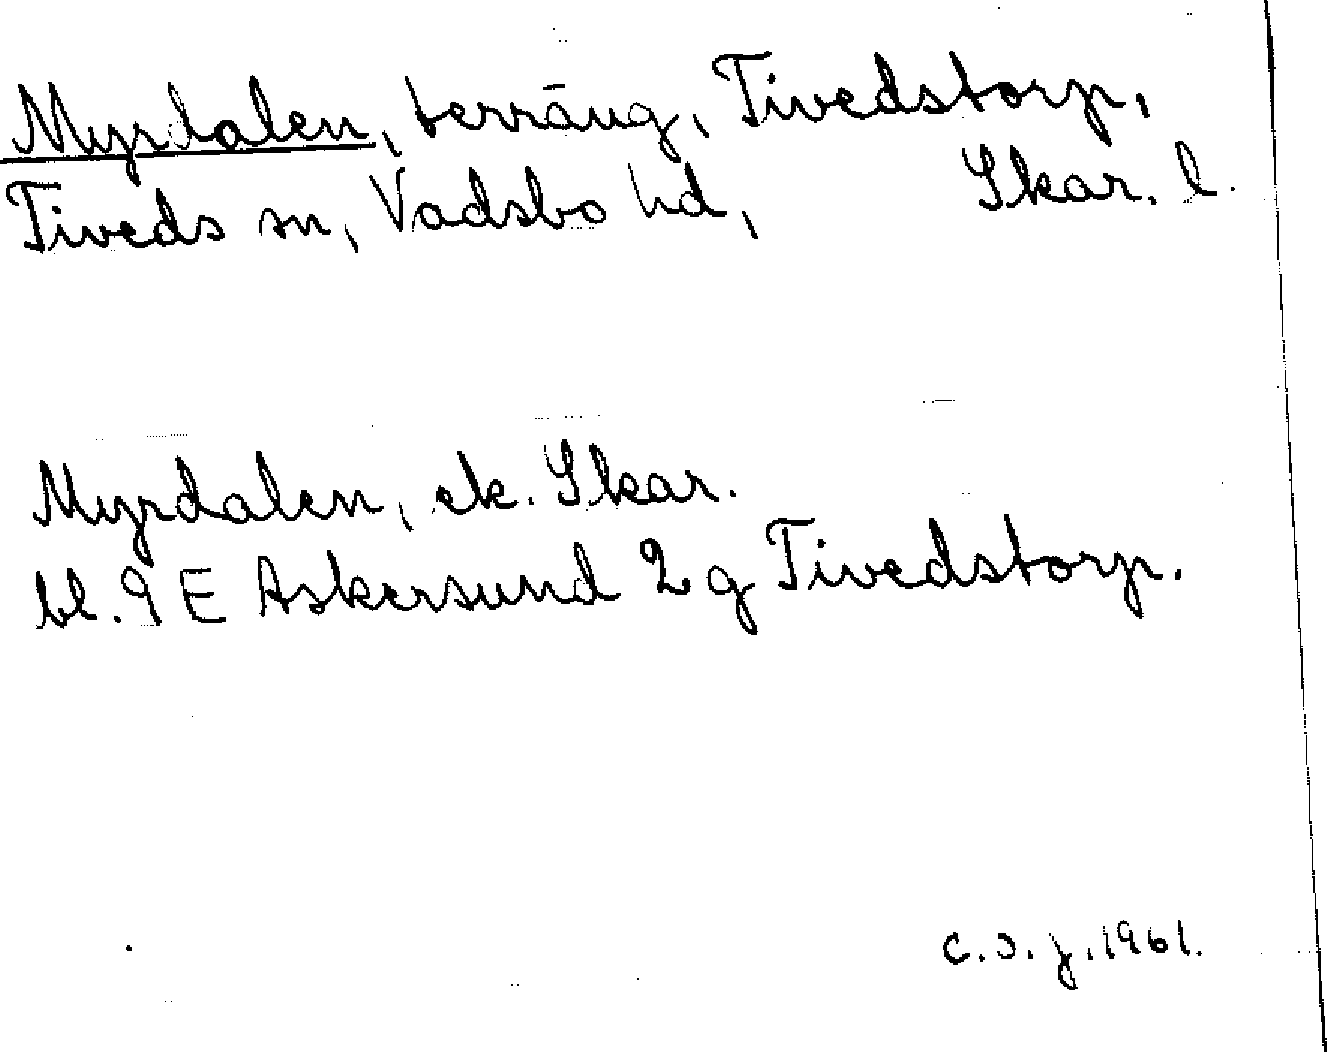 Myrdalen, terräng, Tivedstorp,
Tiveds sn, Vadsbo hd, Skar. l.
Myrdalen, ek. Skar.
bl. 9 E Askersund 2 g Tivedstorp.
1961.